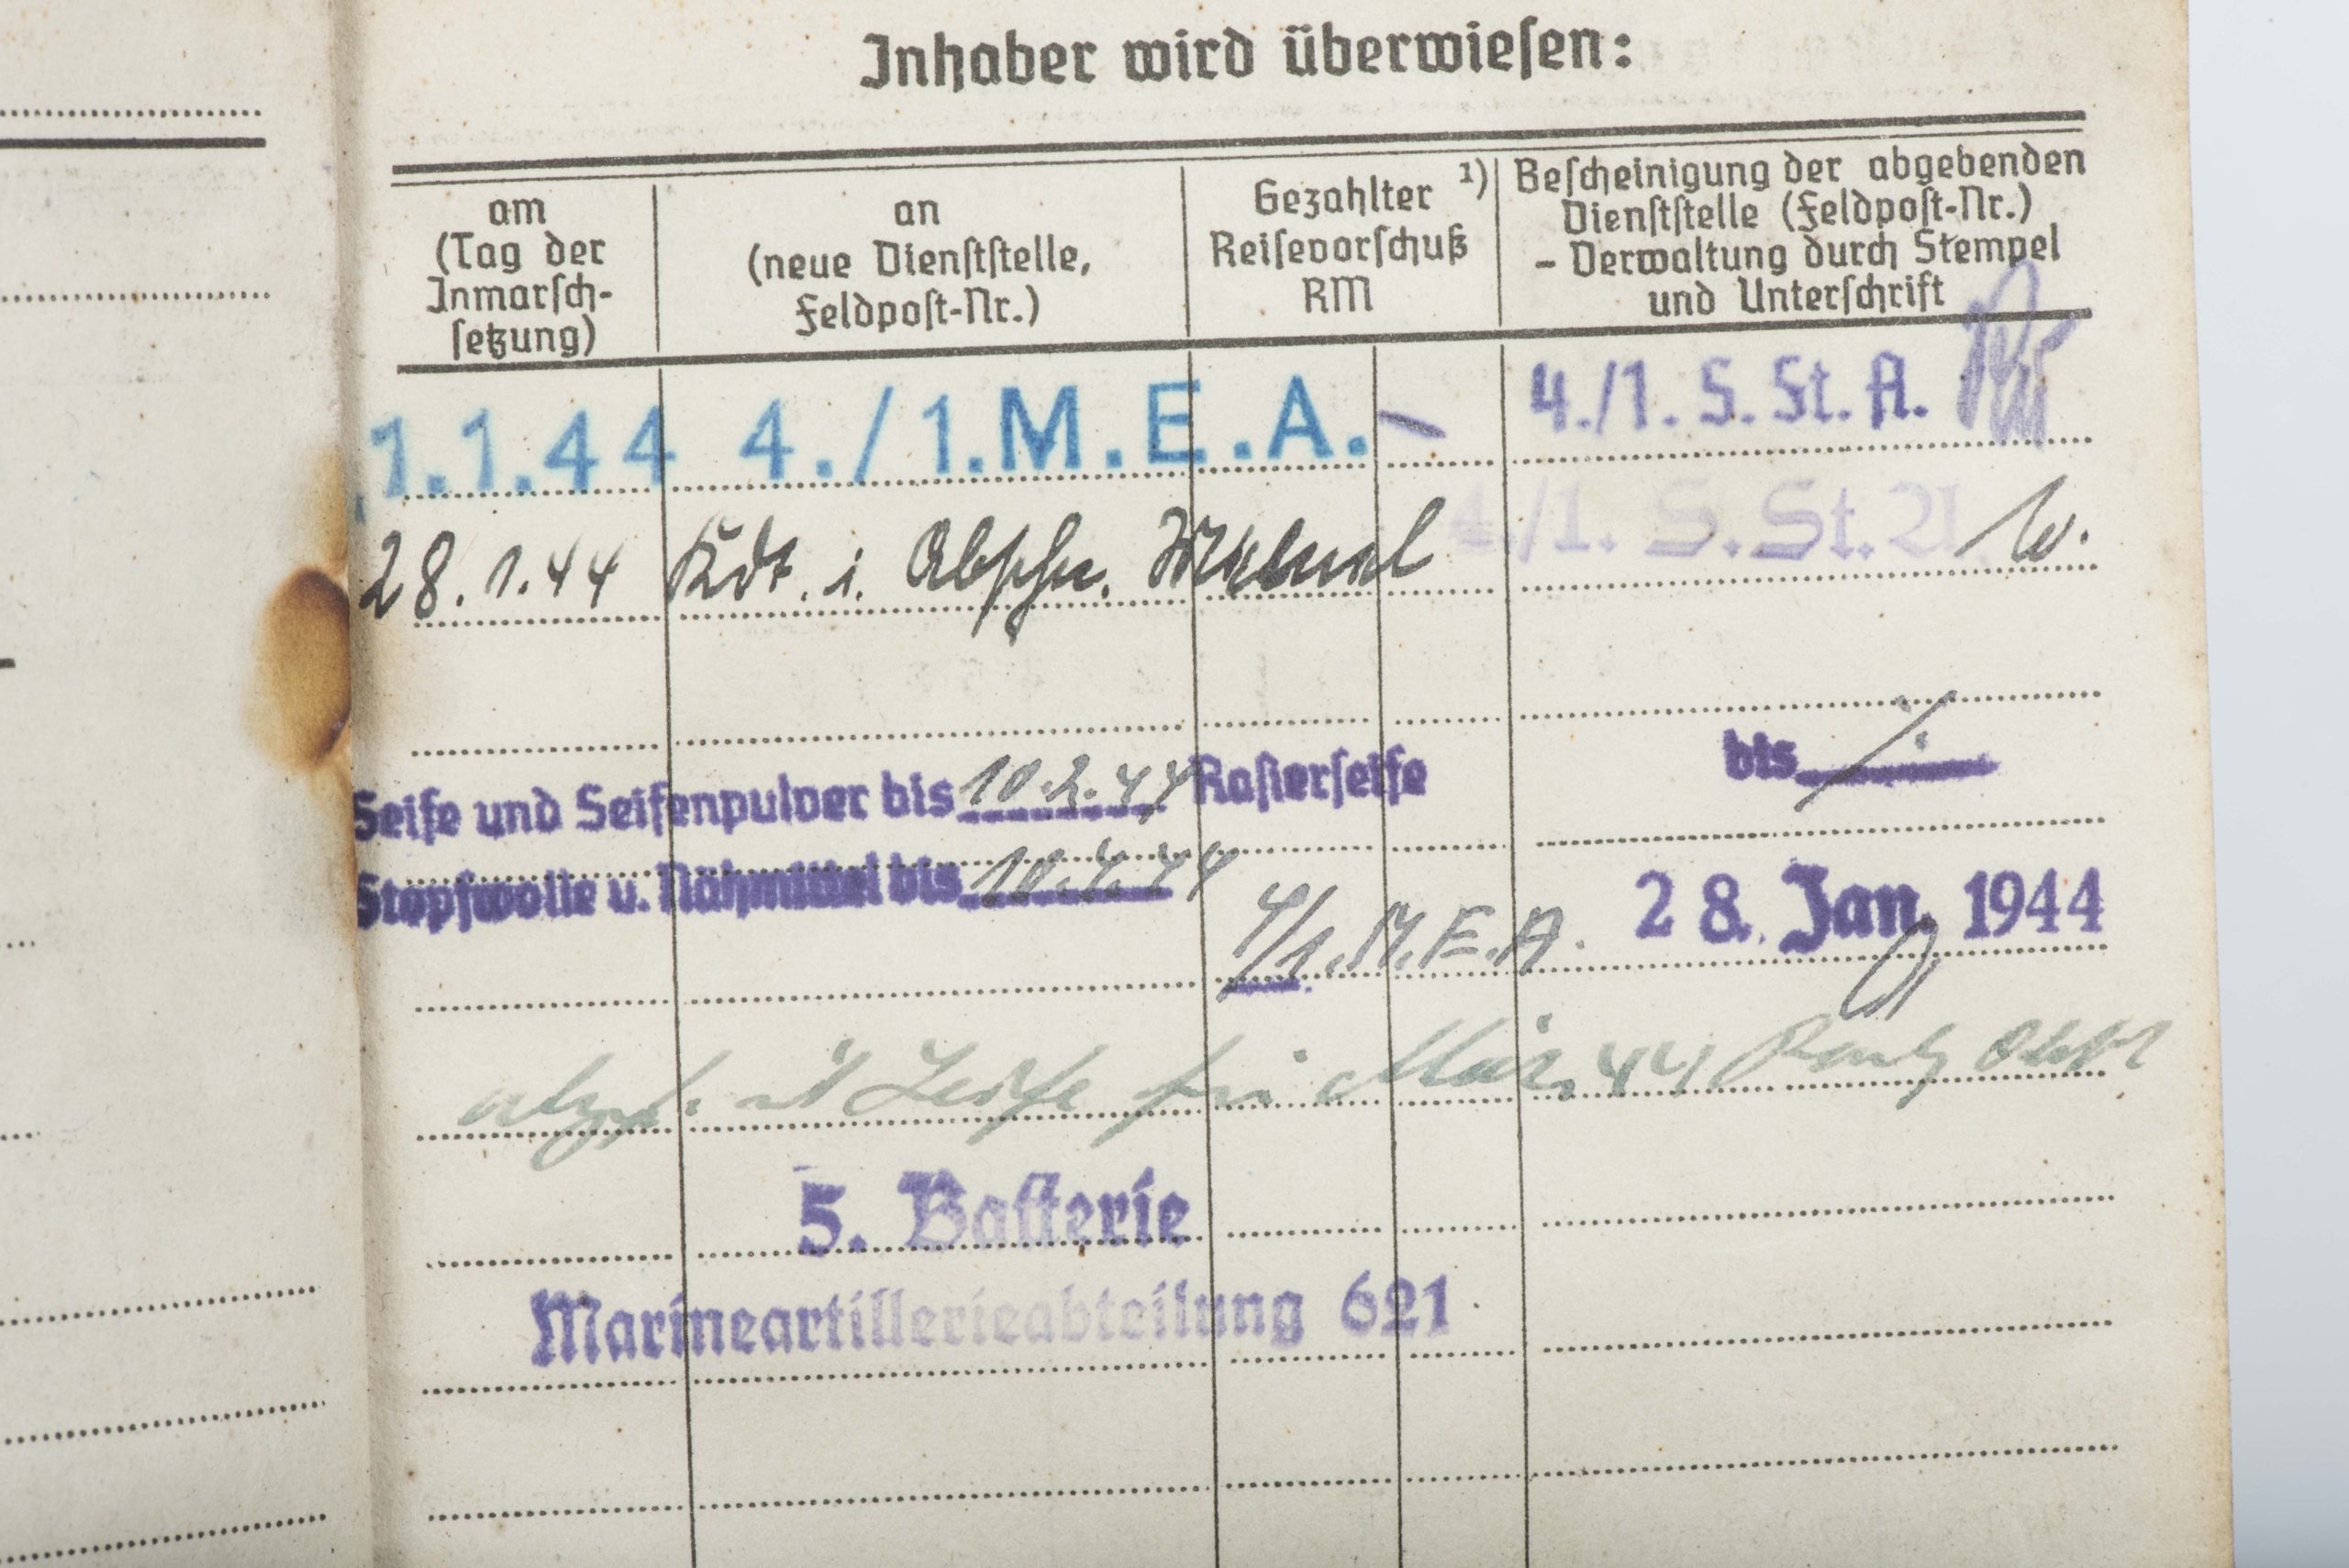 Inhaber wird überwiesen:
am
(Tag der
Inmarsch-
setzung)
an
(neue Dienststelle,
Feldpost-Nr.)
Gezahlter ¹)
Reisevorschuß
RM
Bescheinigung der abgebenden
Dienststelle (Feldpost-Nr.)
- Verwaltung durch Stempel
und Unterschrift
1.1.44 4./1.M.E.A. - 4./1. S. St. A.
28.1.44 Kdt. i. Abschn. 4/1. S. St. A. W.
Seife und Seifenpulver bis 10.2.44 Rasierseife bis
Stopfwolle u. Nähmittel bis 10.4.44
4/1. M.E.A. 28. Jan. 1944
Seife für März 44
5. Batterie
Marineartillerieabteilung 621